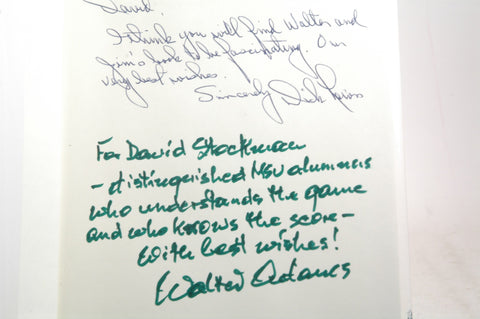 David:
I think you will find Walter and
Jim's book to be fascinating. Our
very best wishes.
Sincerely, Dick
For David Stockman
- distinguished MSU alumnus
who understands the game
and who knows the score -
With best wishes!
Walter Adams